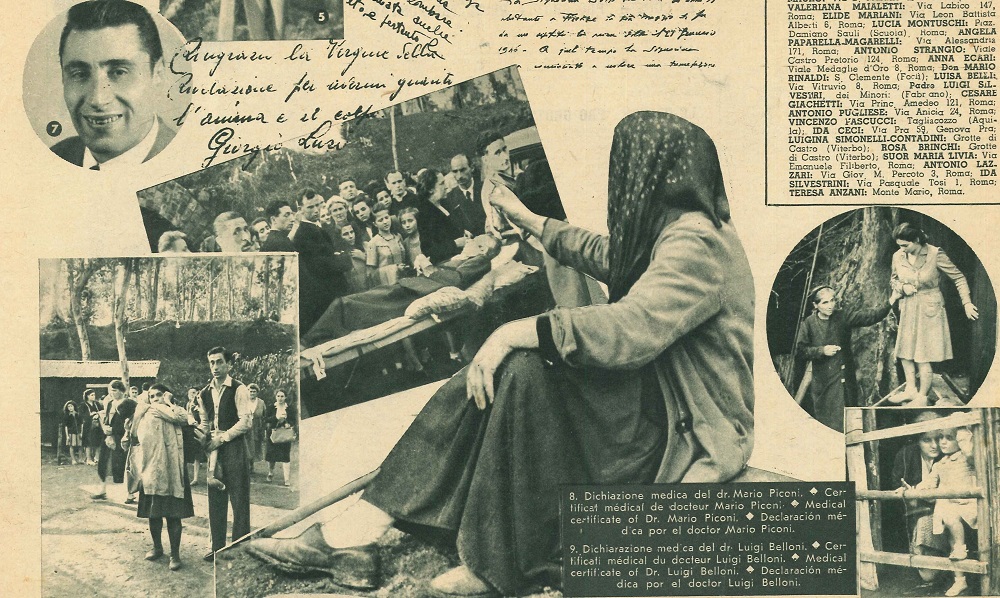 5
Ringrazio la Vergine della
Rivelazione per avermi guarito
l'anima e il corpo.
Giorgio
7
VALERIANA MAIALETTI: Via Labico 147,
Roma; ELIDE MARIANI: Via Leon Battista
Alberti 6, Roma; LUCIA MONTUSCHI: Piaz.
Damiano Sauli (Scuola), Roma; ANGELA
PAPARELLA-MAGARELLI: Via Alessandria
171, Roma; ANTONIO STRANGIO: Viale
Castro Pretorio 124, Roma; ANNA ECARI:
Viale Medaglie d'Oro 8, Roma; Don MARIO
RINALDI: S. Clemente (Focù); LUISA BELLI,
Via Vitruvio 8, Roma; Padre LUIGI SIL-
VESTRI, dei Minori: (Fabriano); CESARE
GIACHETTI: Via Princ. Amedeo 121, Roma;
ANTONIO PUGLIESE: Via Anicia 24, Roma;
VINCENZO FASCUCCI: Tagliacozzo (Aqui-
la); IDA CECI: Via Pra 59, Genova Pra;
LUIGINA SIMONELLI-CONTADINI: Grotte di
Castro (Viterbo); ROSA BRINCHI: Grotte
di Castro (Viterbo); SUOR MARIA LIVIA: Via
Emanuele Filiberto, Roma; ANTONIO LAZ-
ZARI: Via Giov. M. Percoto 3, Roma; IDA
SILVESTRINI: Via Pasquale Tosi 1, Roma;
TERESA ANZANI: Monte Mario, Roma.
8. Dichiazione medica del dr. Mario Piconi. ◆ Cer-
tificat médical de docteur Mario Piconi. ◆ Medical
certificate of Dr. Mario Piconi. ◆ Declaración mé-
dica por el doctor Mario Piconi.
9. Dichiarazione medica del dr. Luigi Belloni. ◆ Cer-
tificati médical du docteur Luigi Belloni. ◆ Medical
certificate of Dr. Luigi Belloni. ◆ Declaración mé-
dica por el doctor Luigi Belloni.